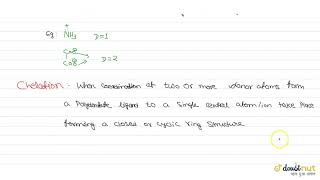 Eg. NH3 D=1
+
COO
COO D=2
Chelation:- When coordination of two or more donor atoms from
a Polydentate ligand to a single central atom/ion take place
forming a closed or cyclic ring structure.
doubtnut